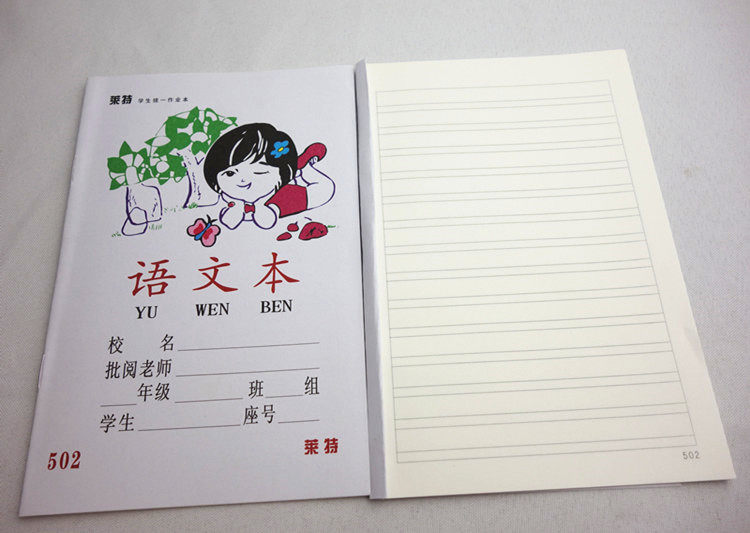 莱特 学生统一作业本
语文本
YU WEN BEN
校 名
批阅老师
年级 班 组
学生 座号
502 莱特
502